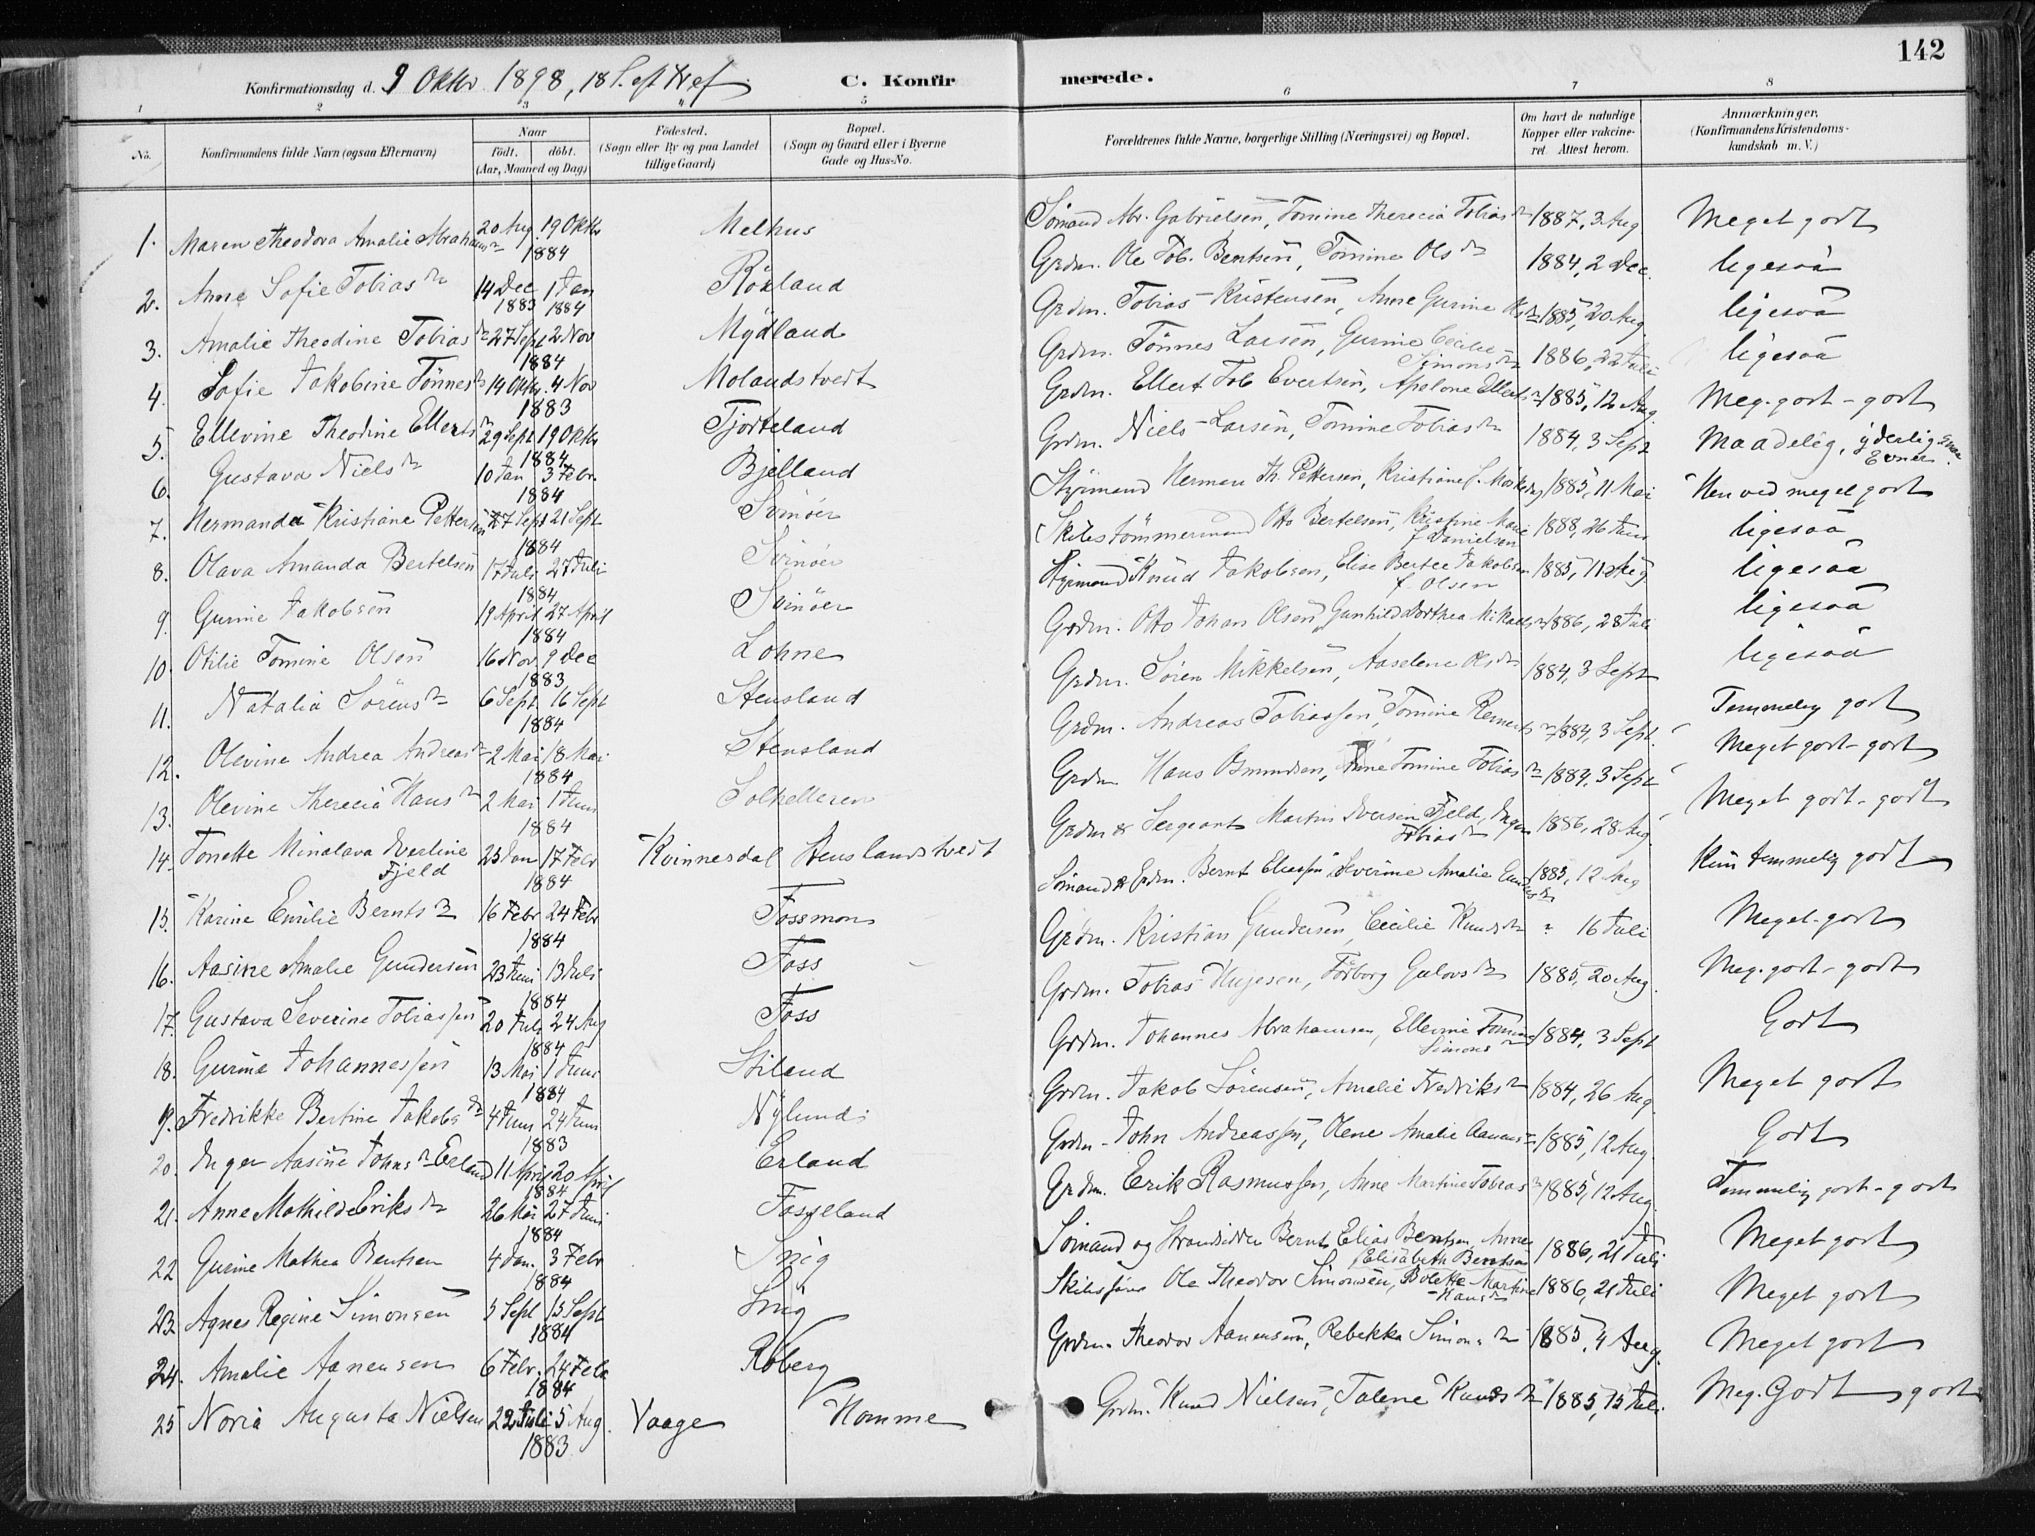 142
Konfirmationsdag d. 9 Oktbr. 1898, 18 S. eft Tref. C. Konfirmerede.
1 2 3 4 5 6 7 8
No. Konfirmandens fulde Navn (ogsaa Efternavn) Naar født. døbt. (Aar, Maaned og Dag) Fødested. (Sogn eller By og paa Landet tillige Gaard) Bopæl. (Sogn og Gaard eller i Byerne Gade og Hus-No. Forældrenes fulde Navne, borgerlige Stilling (Næringsvei) og Bopæl. Om havt de naturlige Kopper eller vakcineret. Attest herom. Anmærkninger. (Konfirmandens Kristendomskundskab m. V.)
1. Maren Theodora Amalie Abrahamsd 20 Aug. 19 Oktbr 1884 Melhus Sömand Abr. Gabrielsen, Tomine Therecia Tobiasd 1887, 3 Aug Meget godt
2. Anne Sofie Tobiasd 14 Dec 1883 1 Jan 1884 Röxland Grdm. Ole Tob. Bentsen, Tomine Olsd 1884, 2 Dec. ligesaa
3. Amalie Theodine Tobiasd 27 Sept 2 Nov 1884 Mydland Grdm. Tobias Kristensen, Anne Gurine 1885, 20 Aug ligesaa
4. Sofie Jakobine Tönnesd 14 Oktbr. 4 Nov 1883 Molandstvedt Grdm. Tönnes Larsen, Gurine Cecilie Simonsd 1886, 22 Juli ligesaa
5. Ellevine Theodine Ellertsd 29 Sept 19 Oktbr 1884 Tjorteland Grdm. Ellert Tob Evertsen, Apolone Ellertsd 1885, 12 Aug. Meg. godt - godt
6. Gustava Nielsd 10 Jan 3 Febr. 1884 Bjelland Grdm. Niels Larsen, Tomine Tobiasd 1884, 3 Sept Maadelig, yderlig smaa Evner.
7. Hermanda Kristiane Pettersen 27 Sept 21 Sept 1884 Svinöer Styrmand Herman Th. Pettersen, Kristiane f. 1885, 11 Mai Hen ved meget godt
8. Olava Amanda Bertelsen 17 Juli 27 Juli 1884 Svinöer Skibstömmermand Otto Bertelsen, Kristine Marie f. Danielsen 1888, 26 Juni ligesaa
9. Gurine Jakobsen 19 April 27 April 1884 Svinöer Styrmand Knud Jakobsen, Elise Bertea Jakobsen f. Olsen 1885, 11 Aug ligesaa
10. Otilie Tomine Olsen 16 Nov. 9 Dec 1883 Lohne Grdm. Otto Johan Olsen, Gunhild Dorthea Mikaelsd 1886, 28 Juli ligesaa
11. Natalia Sörensd 6 Sept. 16 Sept 1884 Stensland Grdm. Sören Mikkelsen, Aaselene Olsd 1884, 3 Sept ligesaa
12. Olevine Andrea Andreasd 2 Mai 18 Mai 1884 Stensland Grdm. Andreas Tobiassen, Tomine Rennertsd 1884, 3 Sept. Temmelig godt
13. Olevine Therecia Hansd 2 Mai 1 Juni 1884 Solhelleren Grdm Hans Omundsen, Anne Tomine Tobiasd 1884, 3 Sept Meget godt - godt
14. Tonette Minalava Everline Fjeld 23 Jan 17 Febr 1884 Kvinnesdal Stenslandstvedt Grdm & Sergeant Martin Iversen Fjeld, Inger Tobiasd 1886, 28 Aug. Meget godt - godt
15. Karine Emilie Berntsd 16 Febr 24 Febr 1884 Fossmon Sömand & Grdm. Bernt Eliassen, Severine Amalie 1885, 12 Aug Kun temmelig godt
16. Aasine Amalie Gundersen 23 Juni 13 Juli 1884 Foss Grdm. Kristian Gundersen, Cecilie Knudsd " 16 Juli Meget godt
17. Gustava Severine Tobiassen 20 Juli 24 Aug 1884 Foss Grdm. Tobias Hujesen, Torborg Gulovsd 1885, 20 Aug. Meg. godt - godt
18. Gurine Johannessen 13 Mai 1 Juni 1884 Stiland Grdm. Johannes Abrahamsen, Ellevine Tomine Simonsd 1884, 3 Sept Godt
19. Fredrikke Bertine Jakobsd 4 Juni 24 Juni 1883 Nylund Grdm. Jakob Sörensen, Amalie Fredriksd 1884, 26 Aug. Meget godt
20. Inger Aasine Johnsd Erland 11 April 20 April 1884 Erland Grdm. John Andreassen, Olene Amalie Aanensd 1885, 12 Aug. Godt
21. Anne Mathilde Eriksd 26 Mai 27 Juni 1884 Fosseland Grdm. Erik Rasmussen, Anne Martine Tobiasd 1885, 12 Aug. Temmelig godt - godt
22. Gurine Mathea Bentsen 4 Jan. 3 Febr 1884 Snig Sömand og Strandsidder Bernt Elias Bentsen, Anne Elisabeth Bentsen 1886, 21 Juli Meget godt
23. Agnes Regine Simonsen 5 Sept. 15 Sept 1884 Snig Skibsförer Ole Theodor Simonsen, Bolette Martine Hansd 1886, 21 Juli Meget godt
24. Amalie Aanensen 6 Febr. 24 Febr 1884 Röberg Grdm. Theodor Aanensen, Rebekka Simonsd 1885, 4 Aug. Meget godt
25 Noria Augusta Nielsen 22 Juli 5 Aug. 1883 Vaage Homme Grdm. Knud Nielsen, Talene Knudsd 1885, 15 Juli. Meg. Godt godt